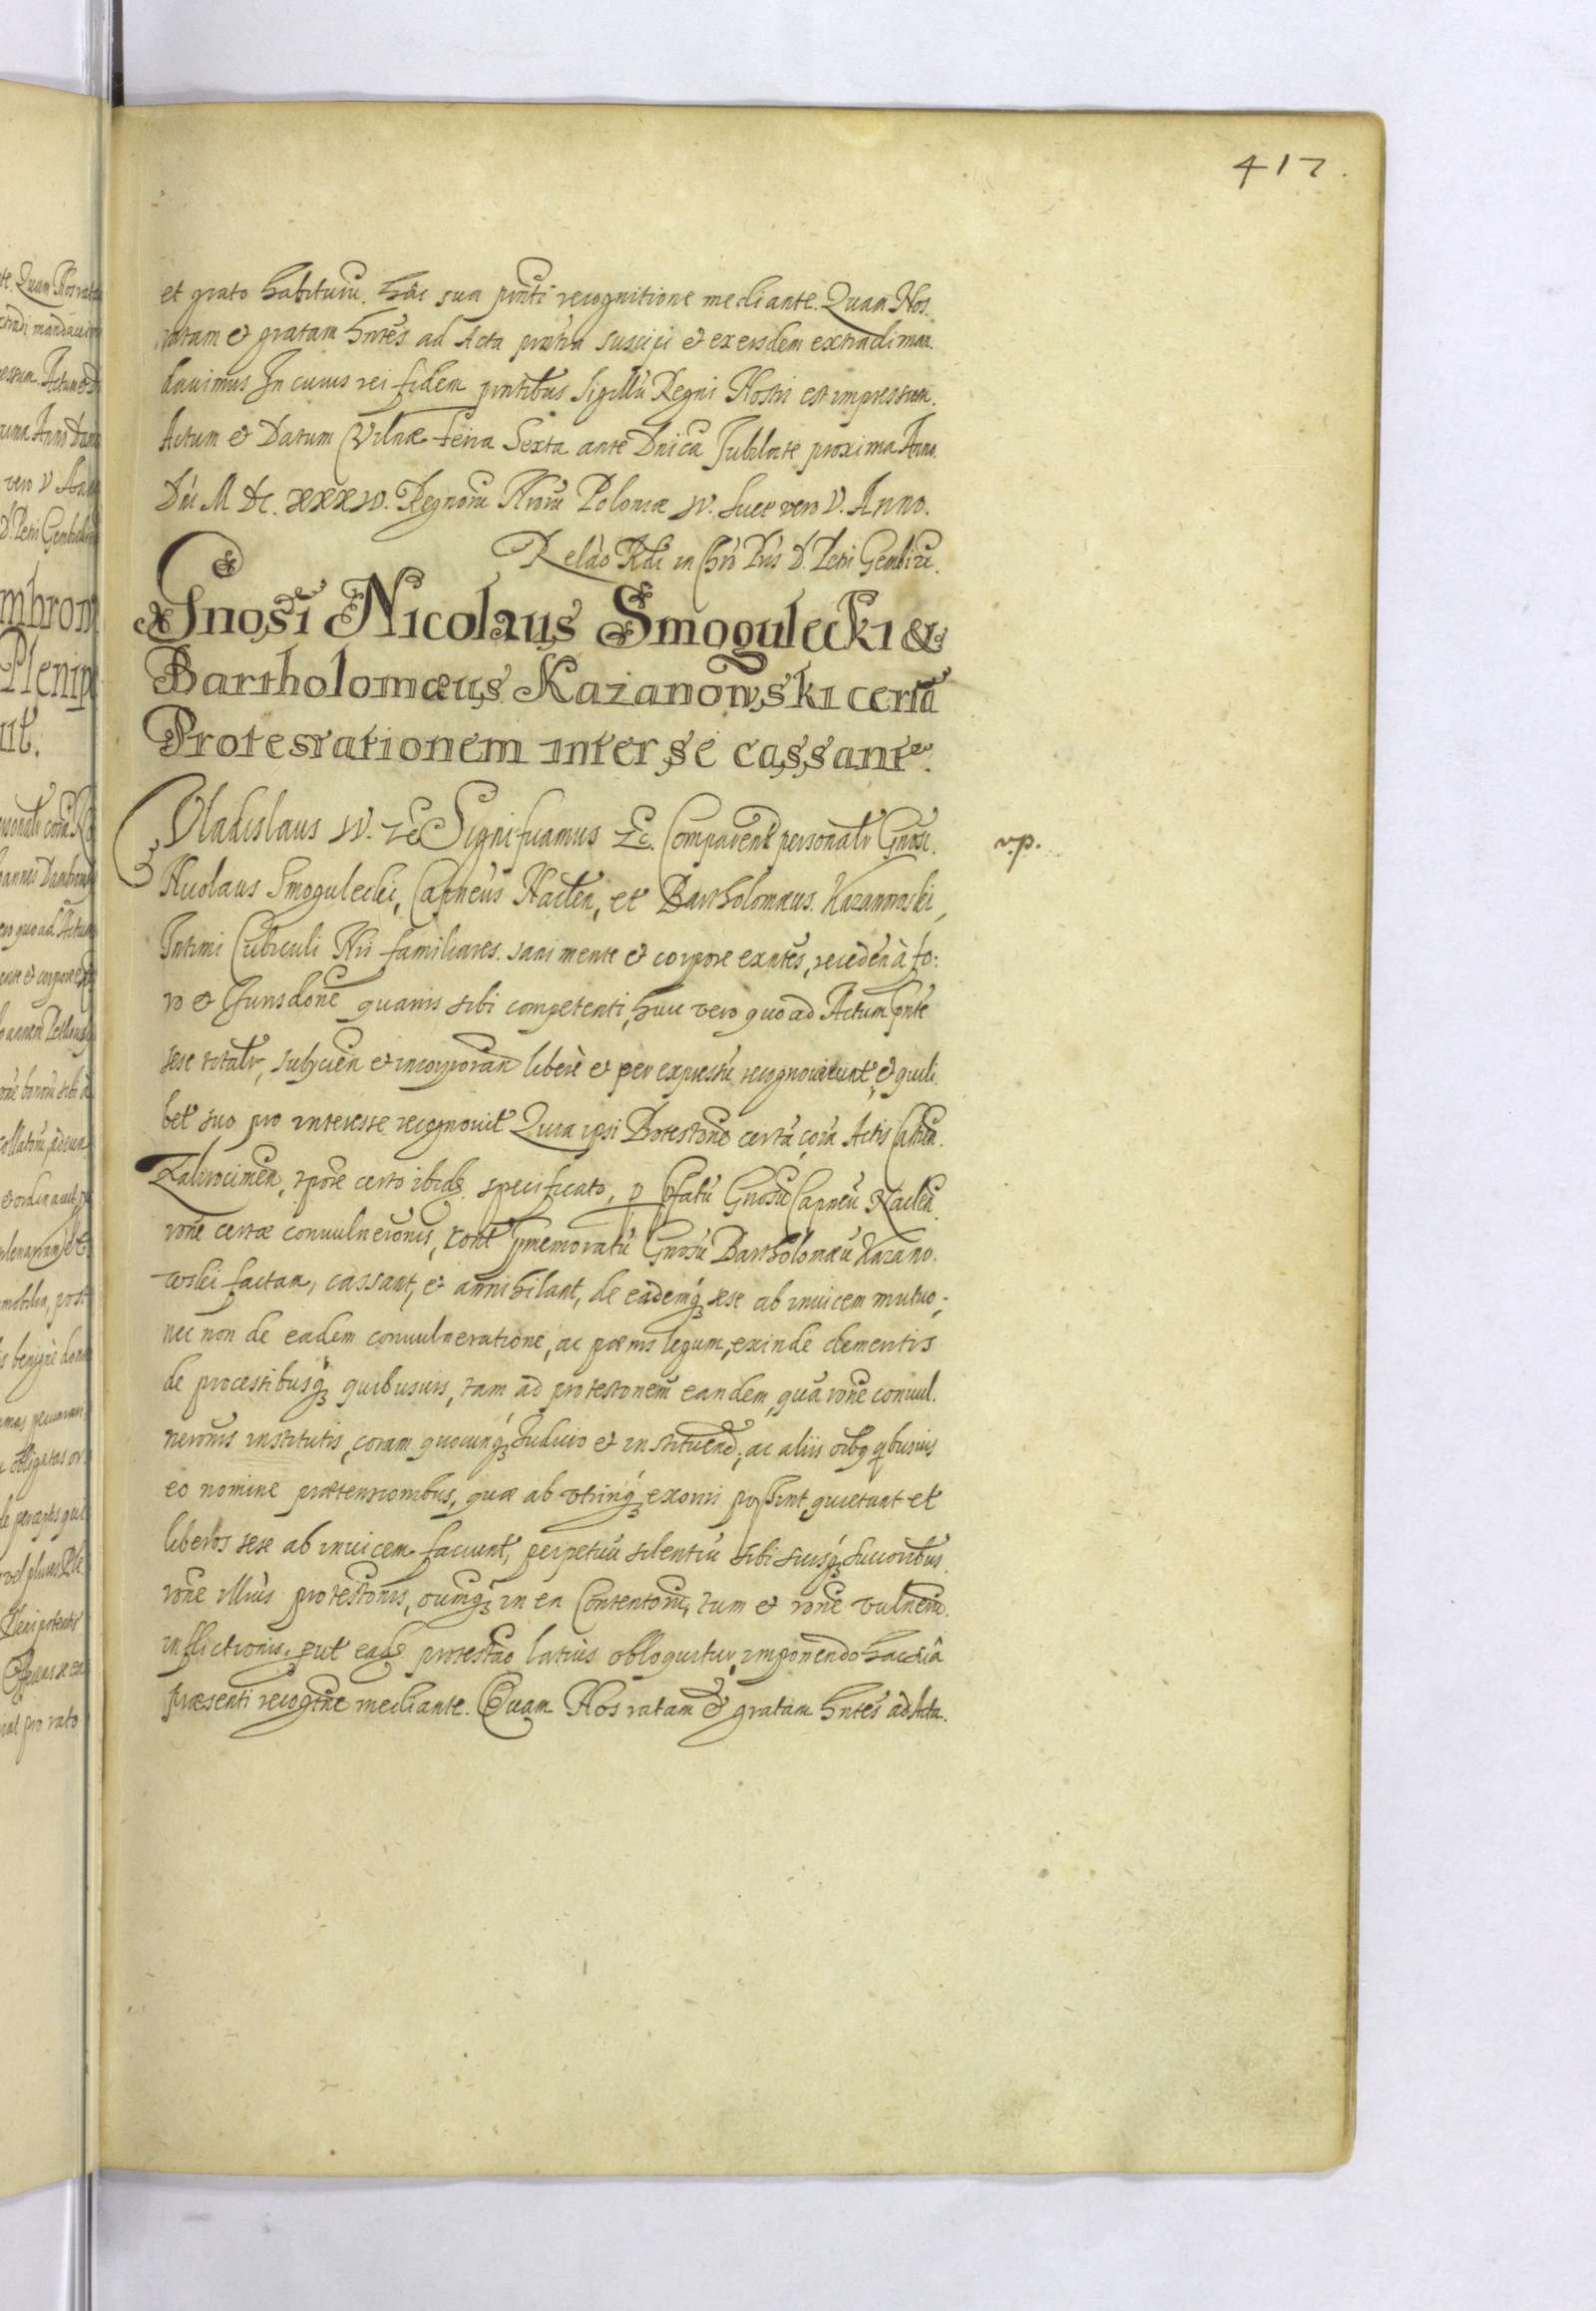 417.
et grato habiturũ. hâc sua pñti recognitione mediante. Quam Nos.
ratam et gratam hñtes ad Acta pñtia suscipi et ex eisdem extradi man.
davimus In cuius rei fidem pñtibus Sigillũ Regni Nostri est impressum.
Actum et Datum Vilnæ feria Sexta ante Dñicã Jubilate proxima Anno.
Dñi M DC. XXXVI. Regnorũ Nrorũ Poloniæ IV. Suet vero V. Anno.
Relão Rdi in Chrõ Pris D. Petri Gembicki.
Gnosi Nicolaus Smogulecki &
Bartholomæus Kazanowski certã
Protestationem inter se cassant.
Vladislaus IV. &c Significamus &c. Comparent personalr Gnosi.
v.p.
Nicolaus Smogulecki, Capneus Naclen, et Bartholomæus Kazanowski,
Intimi Cubiculi Nri familiares. sani mente et corpore exñtes, receden à fo:
ro et Jurisdõne quavis sibi competenti, huic vero quo ad Actum pñte
sese totalr, subijcien et incorporan liberè et per expressũ recognoverunt, et quili.
bet suo pro interesse recognovit Quia ipsi Protestõne certã, corã Actis
tpore certo ibide specificato, p pfatũ Gnosũ Capneũ Naclen.
rõne certæ convulnerõnis, cont pmemoratũ Gnosũ Bartholomæũ Kazano.
wski factam, cassant, et annihilant, de eademq3 sese ab invicem mutuo,
nec non de eadem convulneratione, ac pœnis legum, exinde
de processibusq3 quibusvis, tam ad protestonem eandem, quã rõne convul.
nerõnis institutis, coram quocunq3 Judicio et instituend, ac aliis oĩbq qbusvis
eo nomine prætensionibus, quæ ab utrinq3 exoriri possint quietant et
liberos sese ab invicem faciunt, perpetuũ silentiũ sibi suisq3 succoribus.
rõne illius protestõnis, oũmq3 in ea Contentorũ, tum et rõne vulnerũ.
inflictionis, put eade protestão latius obloquitur, imponendo hac suâ
præsenti recogtne mediante. Quam Nos ratam & gratam hñtes ad Acta.